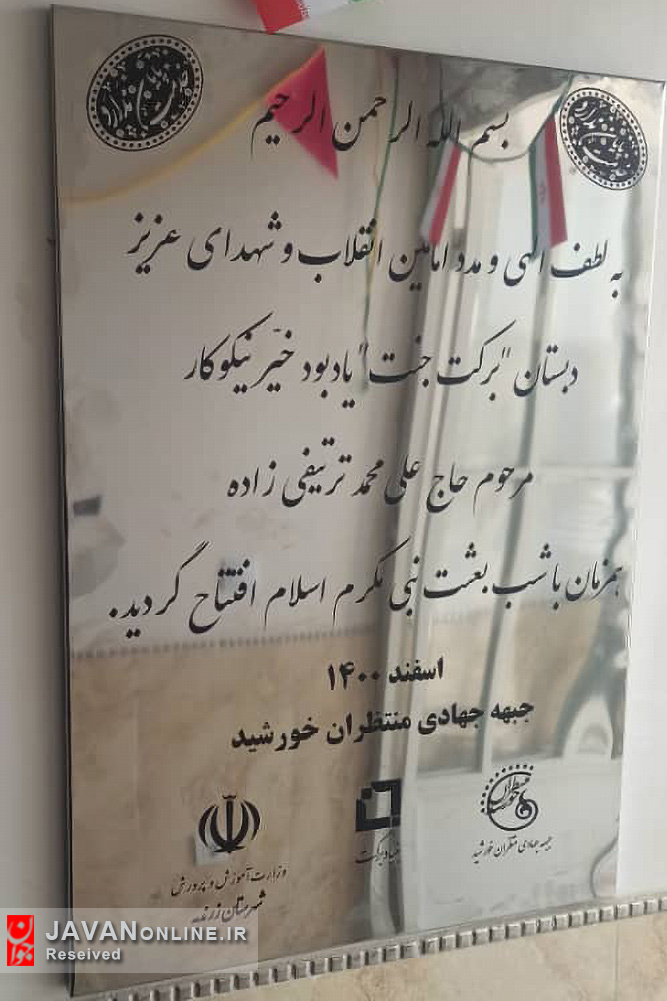 بسم الله الرحمن الرحیم
به لطف الهی و مدد امامین انقلاب و شهدای عزیز
دبستان "برکت جنت" یادبود خیّر نیکوکار
مرحوم حاج علی محمد ترتیفی زاده
همزمان با شب بعثت نبی مکرم اسلام افتتاح گردید.
اسفند ۱۴۰۰
جبهه جهادی منتظران خورشید
منتظران خورشید
جبهه جهادی منتظران خورشید
برکت
وزارت آموزش و پرورش
شهرستان زرند
جوان
JAVANONLINE.IR
Reseived